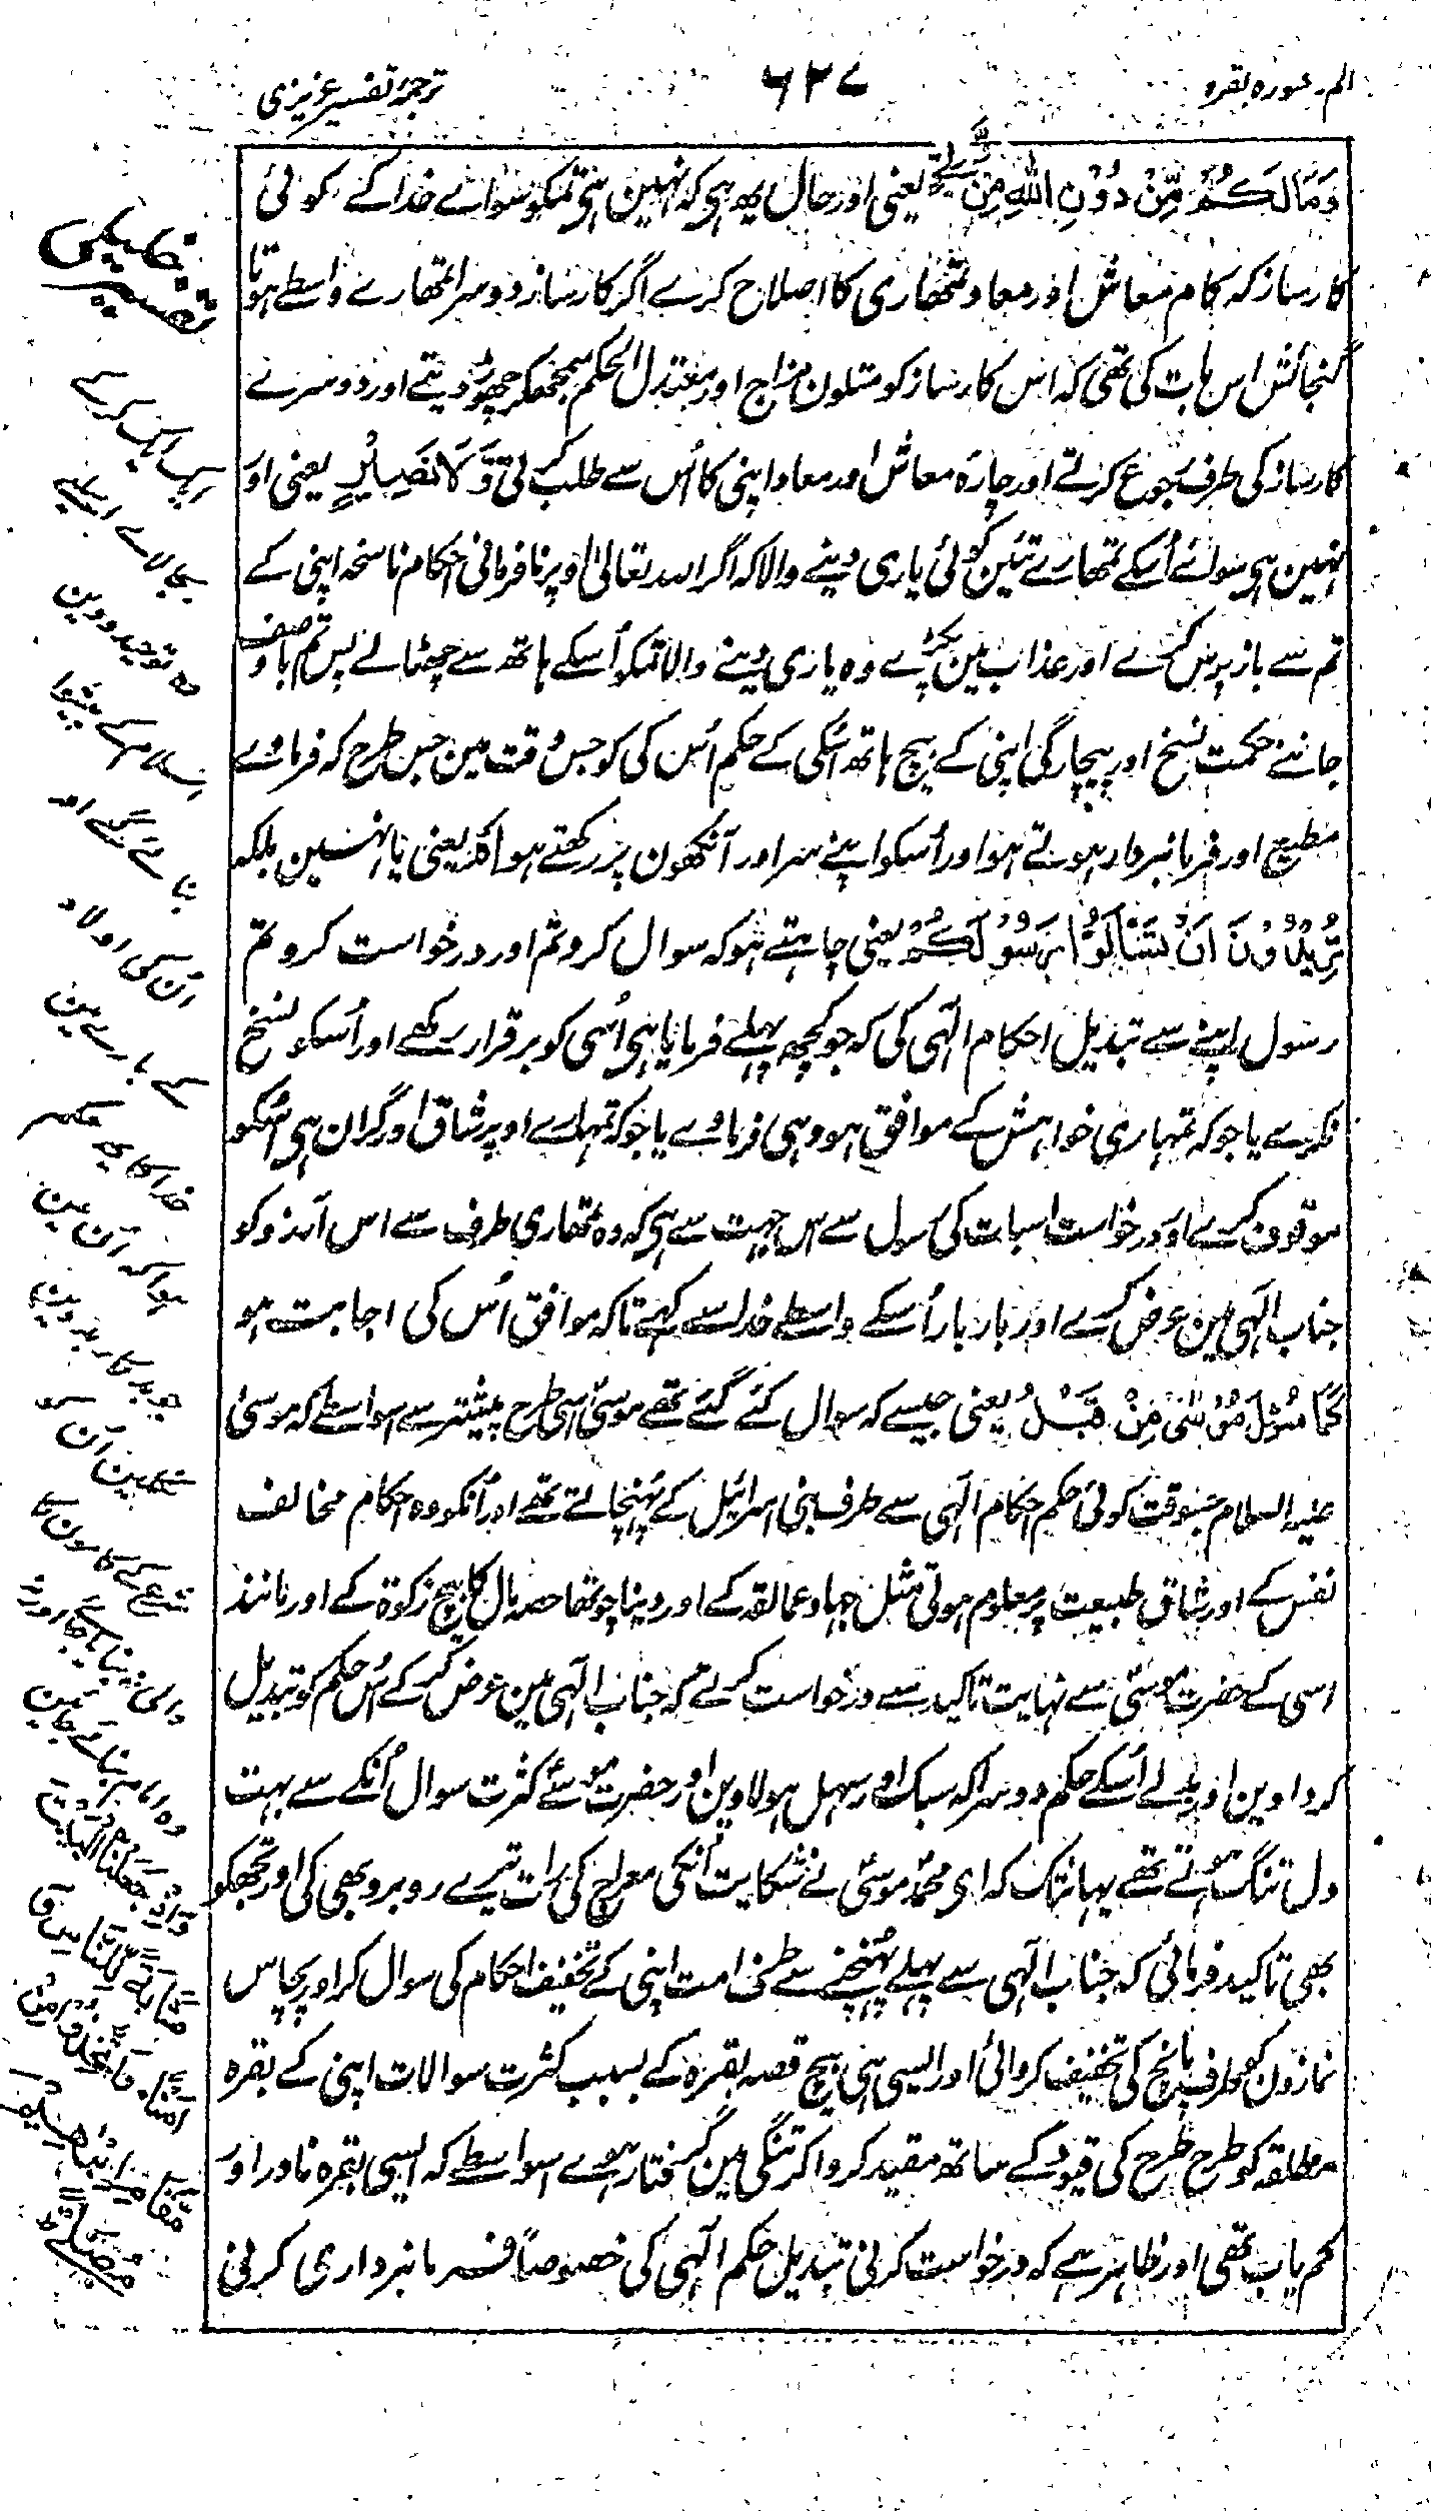 الم ۔ سورہ بقرہ
۶۲۷
ترجمۂ تفسیر عزیزی
وَمَا لَكُمْ مِّنْ دُوْنِ اللّٰهِ مِنْ وَّلِيٍّ یعنی اور حال یہ ہی کہ نہین ہی تمکو سواے خدا کے کوئی
کارساز کہ کام معاش اور معاد تمھاری کا اصلاح کرے اگر کارساز دوسرا تمھارے واسطے ہوتا
گنجائش اس بات کی تھی کہ اس کارساز کو متلون مزاج اور مبتذل الحکم سمجھکر چھوڑ دیتے اور دوسرے
کارساز کی طرف رجوع کرتے اور چارہ معاش اور معاد اپنی کا اُس سے طلب کرتے وَّلَا نَصِيْرٍ یعنی اور
نہین ہی سوائے اُسکے تمھارے تئین کوئی یاری دینے والا کہ اگر اللہ تعالیٰ اوپر نافرمانی احکام ناسخہ اپنی کے
تم سے بازپرس کرے اور عذاب مین پکڑے وہ یاری دینے والا تمکو اُسکے ہاتھ سے چھٹالے پس تم باوصف
جاننے حکمت نسخ اور بیچارگی اپنی کے بیچ ہاتھ اُسکی کے حکم اُس کی کو جس وقت مین جس طرح کہ فرماوے
مطیع اور فرمانبردار ہوتے ہو اور اُسکو اپنے سر اور آنکھون پر رکھتے ہو اَمْ یعنی یا نہین بلکہ
تُرِيْدُوْنَ اَنْ تَسْئَلُوْا رَسُوْلَكُمْ یعنی چاہتے ہو کہ سوال کرو تم اور درخواست کرو تم
رسول اپنے سے تبدیل احکام الٰہی کی کہ جو کچھ پہلے فرمایا ہی اُسی کو برقرار رکھے اور اُسکو نسخ
نکرے یا جو کہ تمہاری خواہش کے موافق ہو وہی فرماوے یا جو کہ تمہارے اوپر شاق اور گران ہی اُسکو
موقوف کرے اور درخواست اسبات کی رسول سے اس جہت سے ہی کہ وہ تمھاری طرف سے اس آرزو کو
جناب الٰہی مین عرض کرے اور بار بار اُسکے واسطے خدا سے کہے تاکہ موافق اُس کی اجابت ہو
كَمَا سُئِلَ مُوْسٰى مِنْ قَبْلُ یعنی جیسے کہ سوال کئے گئے تھے موسیٰ اسی طرح پیشتر سے اسواسطے کہ موسیٰ
علیہ السلام جسوقت کوئی حکم احکام الٰہی سے طرف بنی اسرائیل کے پہنچاتے تھے اور اُنکو وہ احکام مخالف
نفس کے اور شاق طبیعت پر معلوم ہوتی مثل جہاد عمالقہ کے اور دینا چوتھا حصہ مال کا بیچ زکوٰة کے اور مانند
اسی کے حضرت موسیٰ سے نہایت تاکید سے درخواست کرتے کہ جناب الٰہی مین عرض کرکے اُس حکم کو تبدیل
کرداوین اور بدلے اُسکے حکم دوسرا کہ سبک اور سہل ہو لاوین اور حضرت موسیٰ کثرت سوال اُنکے سے بہت
دل تنگ ہوتے تھے یہانتک کہ ای محمد موسیٰ نے شکایت اُنکی معراج کی رات تیرے روبرو بھی کی اور تجھکو
بھی تاکید فرمائی کہ جناب الٰہی سے پہلے پہنچنے سے طرف امت اپنی کے تخفیف احکام کی سوال کر اور پچاس
نمازون کو طرف پانچ کی تخفیف کروائی اور ایسی ہی بیچ قصہ بقرہ کے بسبب کثرت سوالات اپنی کے بقرہ
مطلقہ کو طرح طرح کی قیود کے ساتھ مقید کرواکر تنگی مین گرفتار ہوے اسواسطے کہ ایسی بقرہ نادر اور
کم یاب تھی اور ظاہر ہے کہ درخواست کرنی تبدیل حکم الٰہی کی خصوصاً فرمانبرداری کرنی
بجا لائے اسلیے
وہ توحید و دین
اُن کی اولاد
کے بارے مین
خدا کا یہ حکم
ہوا کہ اُن مین
وَاِذْ جَعَلْنَا الْبَيْتَ
مَثَابَةً لِّلنَّاسِ وَ
اَمْنًا وَاتَّخِذُوْا مِنْ
مَّقَامِ اِبْرَاهِيْمَ
مُصَلًّى